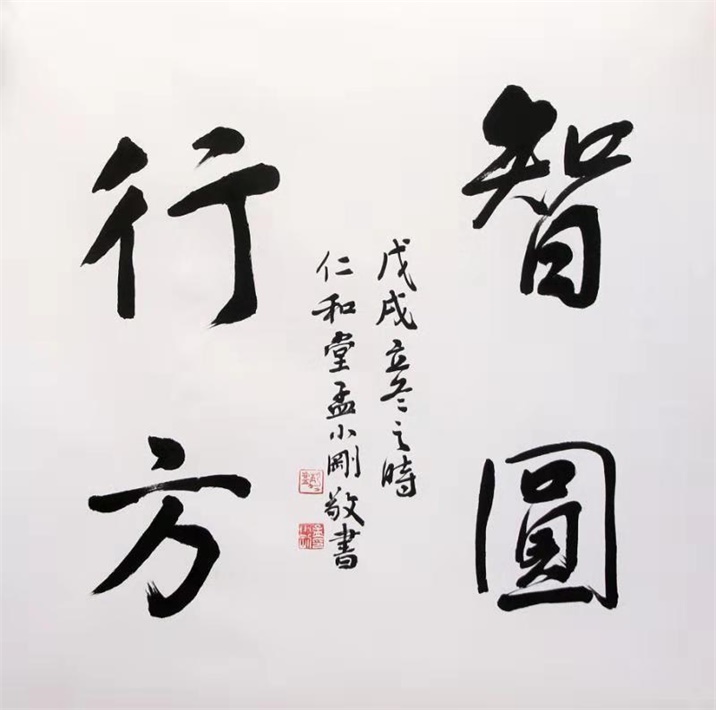 智圓
行方
戊戌立冬之時
仁和堂孟小剛敬書